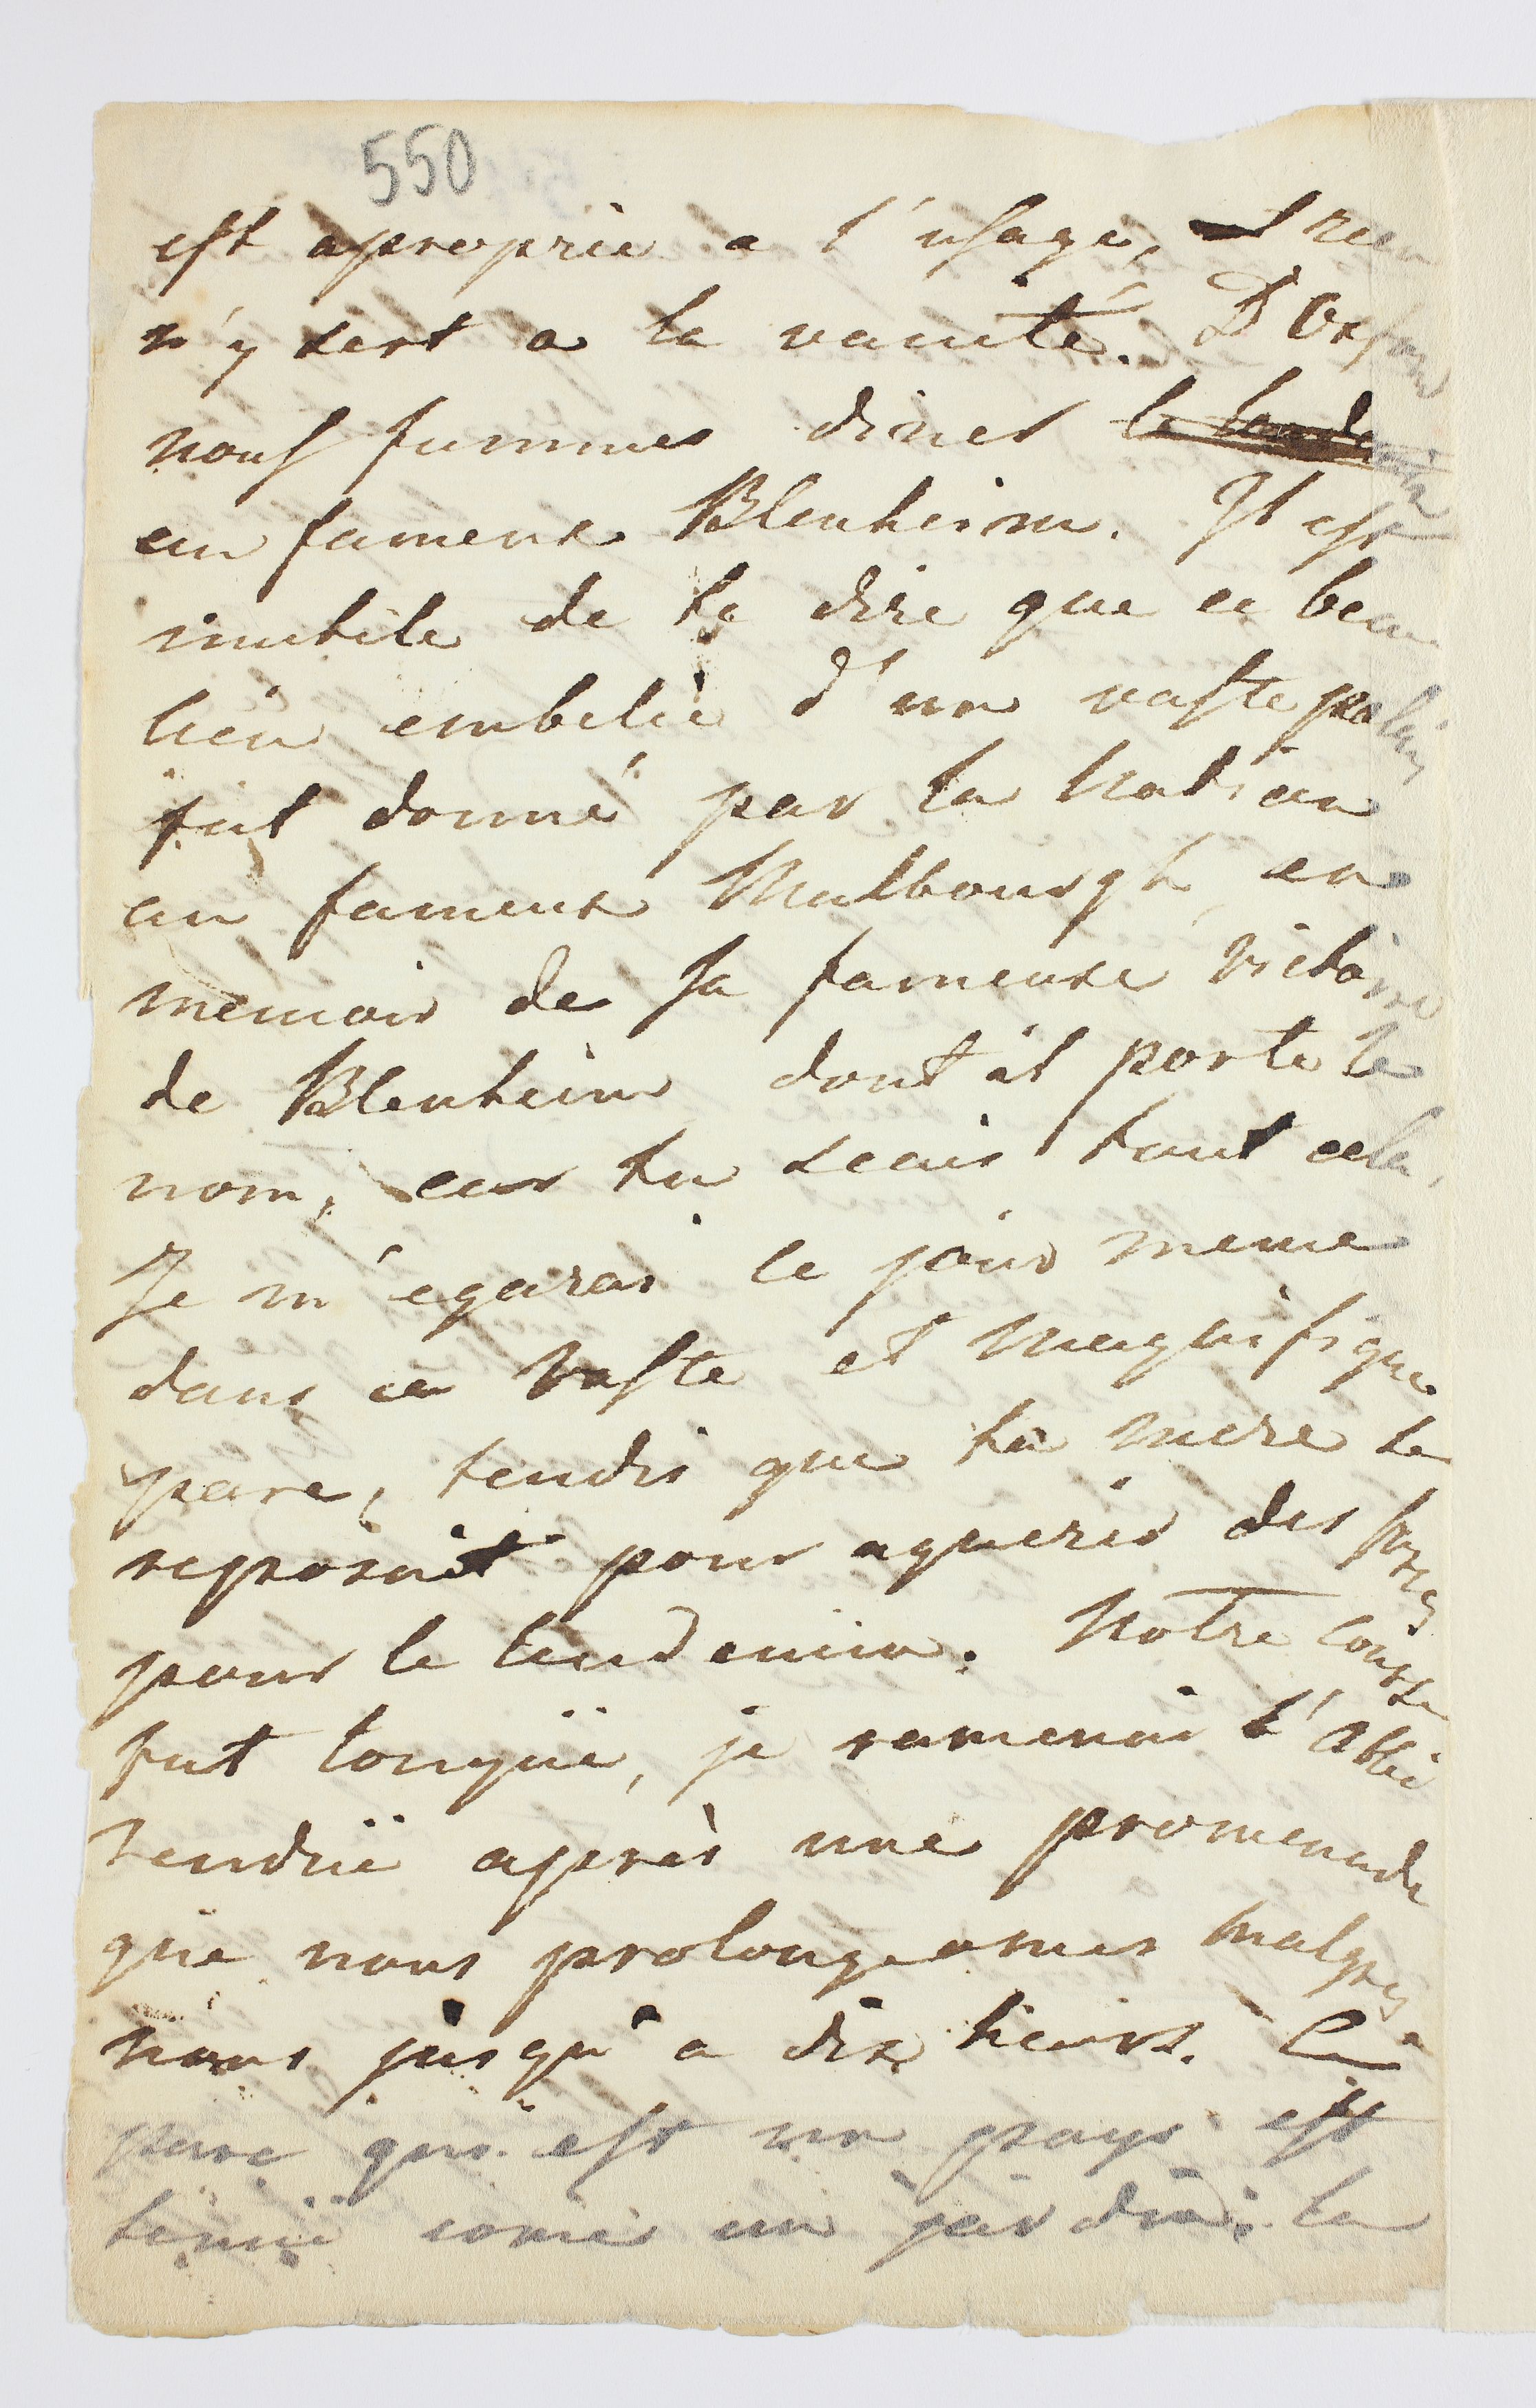 550
est aproprié a l'usage, et rien
n'y sert a la vanité. D'Oxford
nous fummes diner le lendemain
au fameux Blenheim. Il est
inutile de te dire que ce beau
lieu embelie d'un vaste palais
fut donné par la Nation
au fameux Malbourgh, en
memoir de sa fameuse victoire
de Blenheim dont il porte le
nom, car tu scais tout cela,
Je m'egarai le jour meme
dans ce vaste et magnifique
parc, tandis que ta mere se
reposait pour aquerir des forces
pour le lendemain. Notre course
fut longue, je ramenai l'Abbé
rendüe après une promenade
que nous prolongeames malgré
nous jusqu'a dix heurs. Ce
parc qui est un pays est
tenüe come un jardin. la